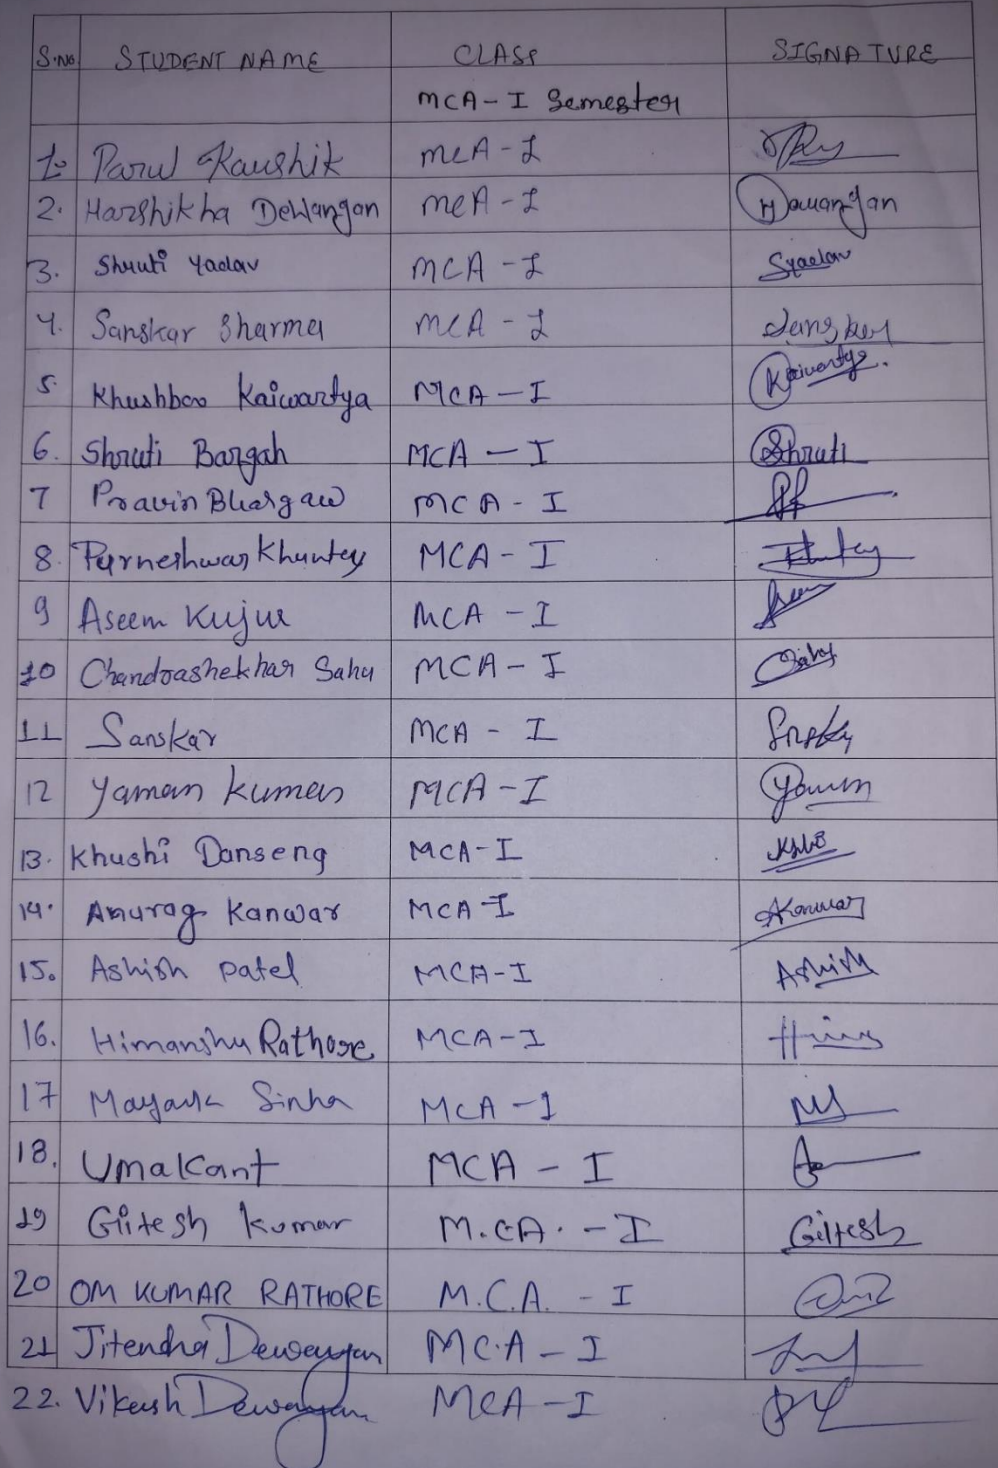 S.No STUDENT NAME CLASS SIGNATURE
MCA-I Semester
1. Parul Kaushik MCA-I
2. Harshikha Dewangan MCA-I Dewangan
3. Shruti Yadav MCA-I Syadav
4. Sanskar Sharma MCA-I
5. Khushboo Kaiwartya MCA-I Kaiwartya.
6. Shruti Bargah MCA-I Shruti
7 Pravin Bhargaw MCA-I
8. Purneshwar Khuntey MCA-I
9 Aseem Kujur MCA-I
10 Chandrashekhar Sahu MCA-I
11 Sanskar MCA-I
12 Yaman Kumar MCA-I
13. Khushi Danseng MCA-I
14. Anurag Kanwar MCA-I AKanwar
15. Ashish Patel MCA-I Ashish
16. Himanshu Rathore MCA-I
17 Mayank Sinha MCA-I
18. Umakant MCA-I
19 Giitesh Kumar M.CA.-I Giitesh
20 OM KUMAR RATHORE M.C.A.-I
21 Jitendra Dewangan MC.A-I
22. Vikash Dewangan MCA-I